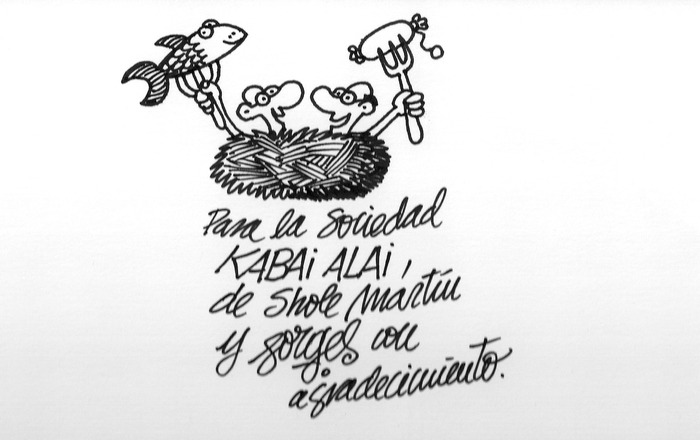 Para la Sociedad
KABAi ALAi,
de Shole Martín
y Forges con
agradecimiento.